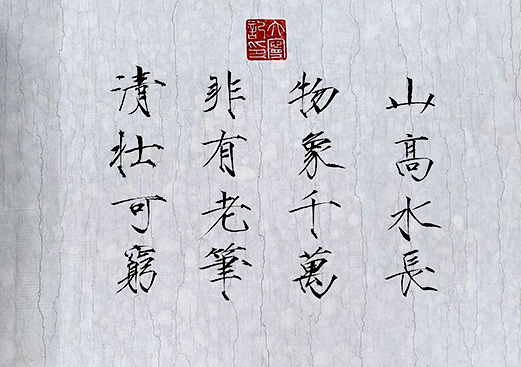 山高水長
物象千萬
非有老筆
清壯可窮